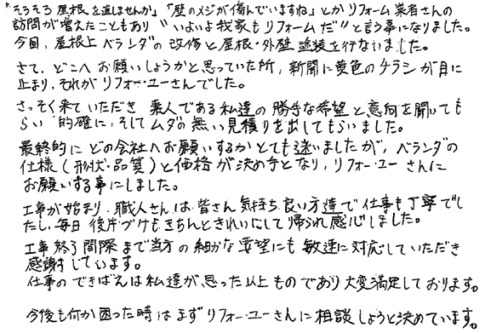 "そろそろ屋根を直しませんか"「壁のメジが傷んでいますね」とかリフォーム業者さんの
訪問が増えたこともあり"いよいよ我家もリフォームだ"と言う事になりました。
今回、屋根上ベランダの改修と屋根・外壁塗装を行ないました。
さて、どこへお願いしようかと思っていた所、新聞に黄色のチラシが目に
止まり、それがリフォー・ユーさんでした。
さっそく来ていただき素人である私達の勝手な希望と意向を聞いても
らい的確に、そしてムダの無い見積りを出してもらいました。
最終的にどの会社へお願いするかとても迷いましたが、ベランダの
仕様（形状・品質）と価格が決め手となり、リフォー・ユーさんに
お願いする事にしました。
工事が始まり、職人さんは、皆さん気持ち良い方達で仕事も丁寧でし
たし、毎日後片づけもきちんときれいにして帰られ感心しました。
工事終了間際まで当方の細かな要望にも敏速に対応していただき
感謝しています。
仕事のできばえは私達が思った以上ものであり大変満足しております。
今後も何か困った時はまずリフォー・ユーさんに相談しようと決めています。